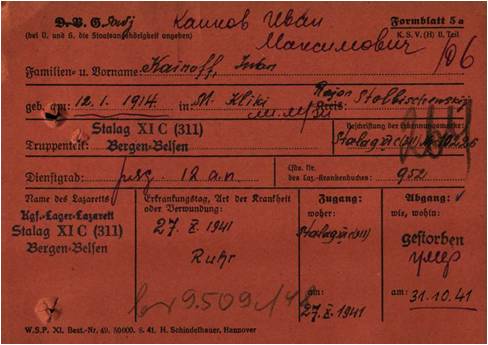 D. V. G.
Каинов Иван
Formblatt 5a
(bei D. und G. die Staatsangehörigkeit angeben)
K. S. V. (H) II. Teil
Максимович
Familien- u. Vorname: Kainoff, Iwan
geb. am: 12.1.1914 in: Kliki Kreis: Rajon Stolbischenski
Stalag XI C (311)
Beschriftung der Erkennungsmarke:
Truppenteil: Bergen-Belsen
Dienstgrad: 12 a.n.
Lfde. Nr.
des Laz.-Krankenbuches: 952
Name des Lazaretts
Kgf.-Lager-Lazarett
Stalag XI C (311)
Bergen-Belsen
Erkrankungstag, Art der Krankheit
oder Verwundung:
27. X. 1941
Ruhr
Zugang:
woher:
am:
27. X. 1941
Abgang:
wie, wohin:
gestorben
умер
am: 31.10.41
W.S.P. XI. Best.-Nr. 49. 50000. 8. 41. H. Schindelhauer, Hannover